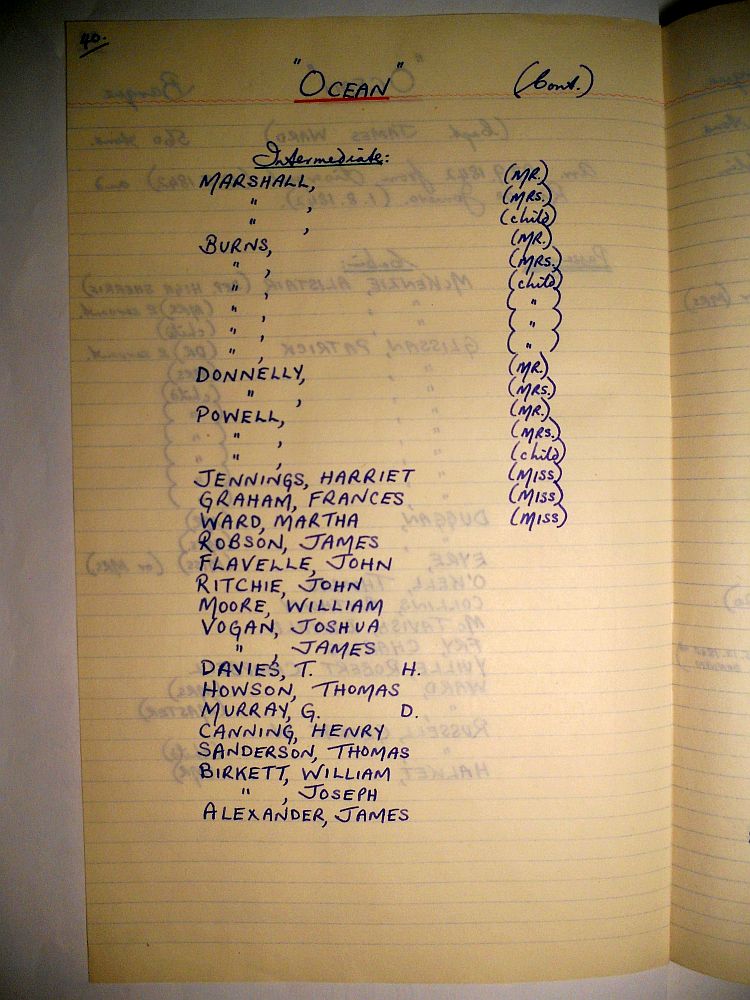 40.
"OCEAN" (Cont.)
Intermediate:
MARSHALL, (MR.)
" , (MRS.)
" , (child)
BURNS, (MR.)
" , (MRS.)
" , (child)
" , ( " )
" , ( " )
" , ( " )
DONNELLY, (MR.)
" , (MRS.)
POWELL, (MR.)
" , (MRS.)
" , (child)
JENNINGS, HARRIET (MISS)
GRAHAM, FRANCES (MISS)
WARD, MARTHA (MISS)
ROBSON, JAMES
FLAVELLE, JOHN
RITCHIE, JOHN
MOORE, WILLIAM
VOGAN, JOSHUA
" , JAMES
DAVIES, T. H.
HOWSON, THOMAS
MURRAY, G. D.
CANNING, HENRY
SANDERSON, THOMAS
BIRKETT, WILLIAM
" , JOSEPH
ALEXANDER, JAMES